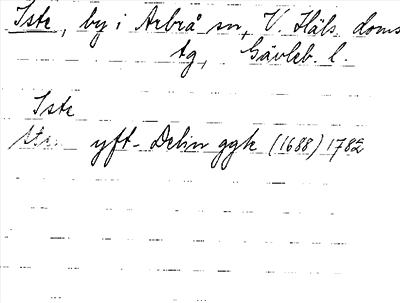 Iste, by i Arbrå sn, V. Häls. doms
tg, Gävleb. l.
Iste
yft. Delin ggk (1688) 1782